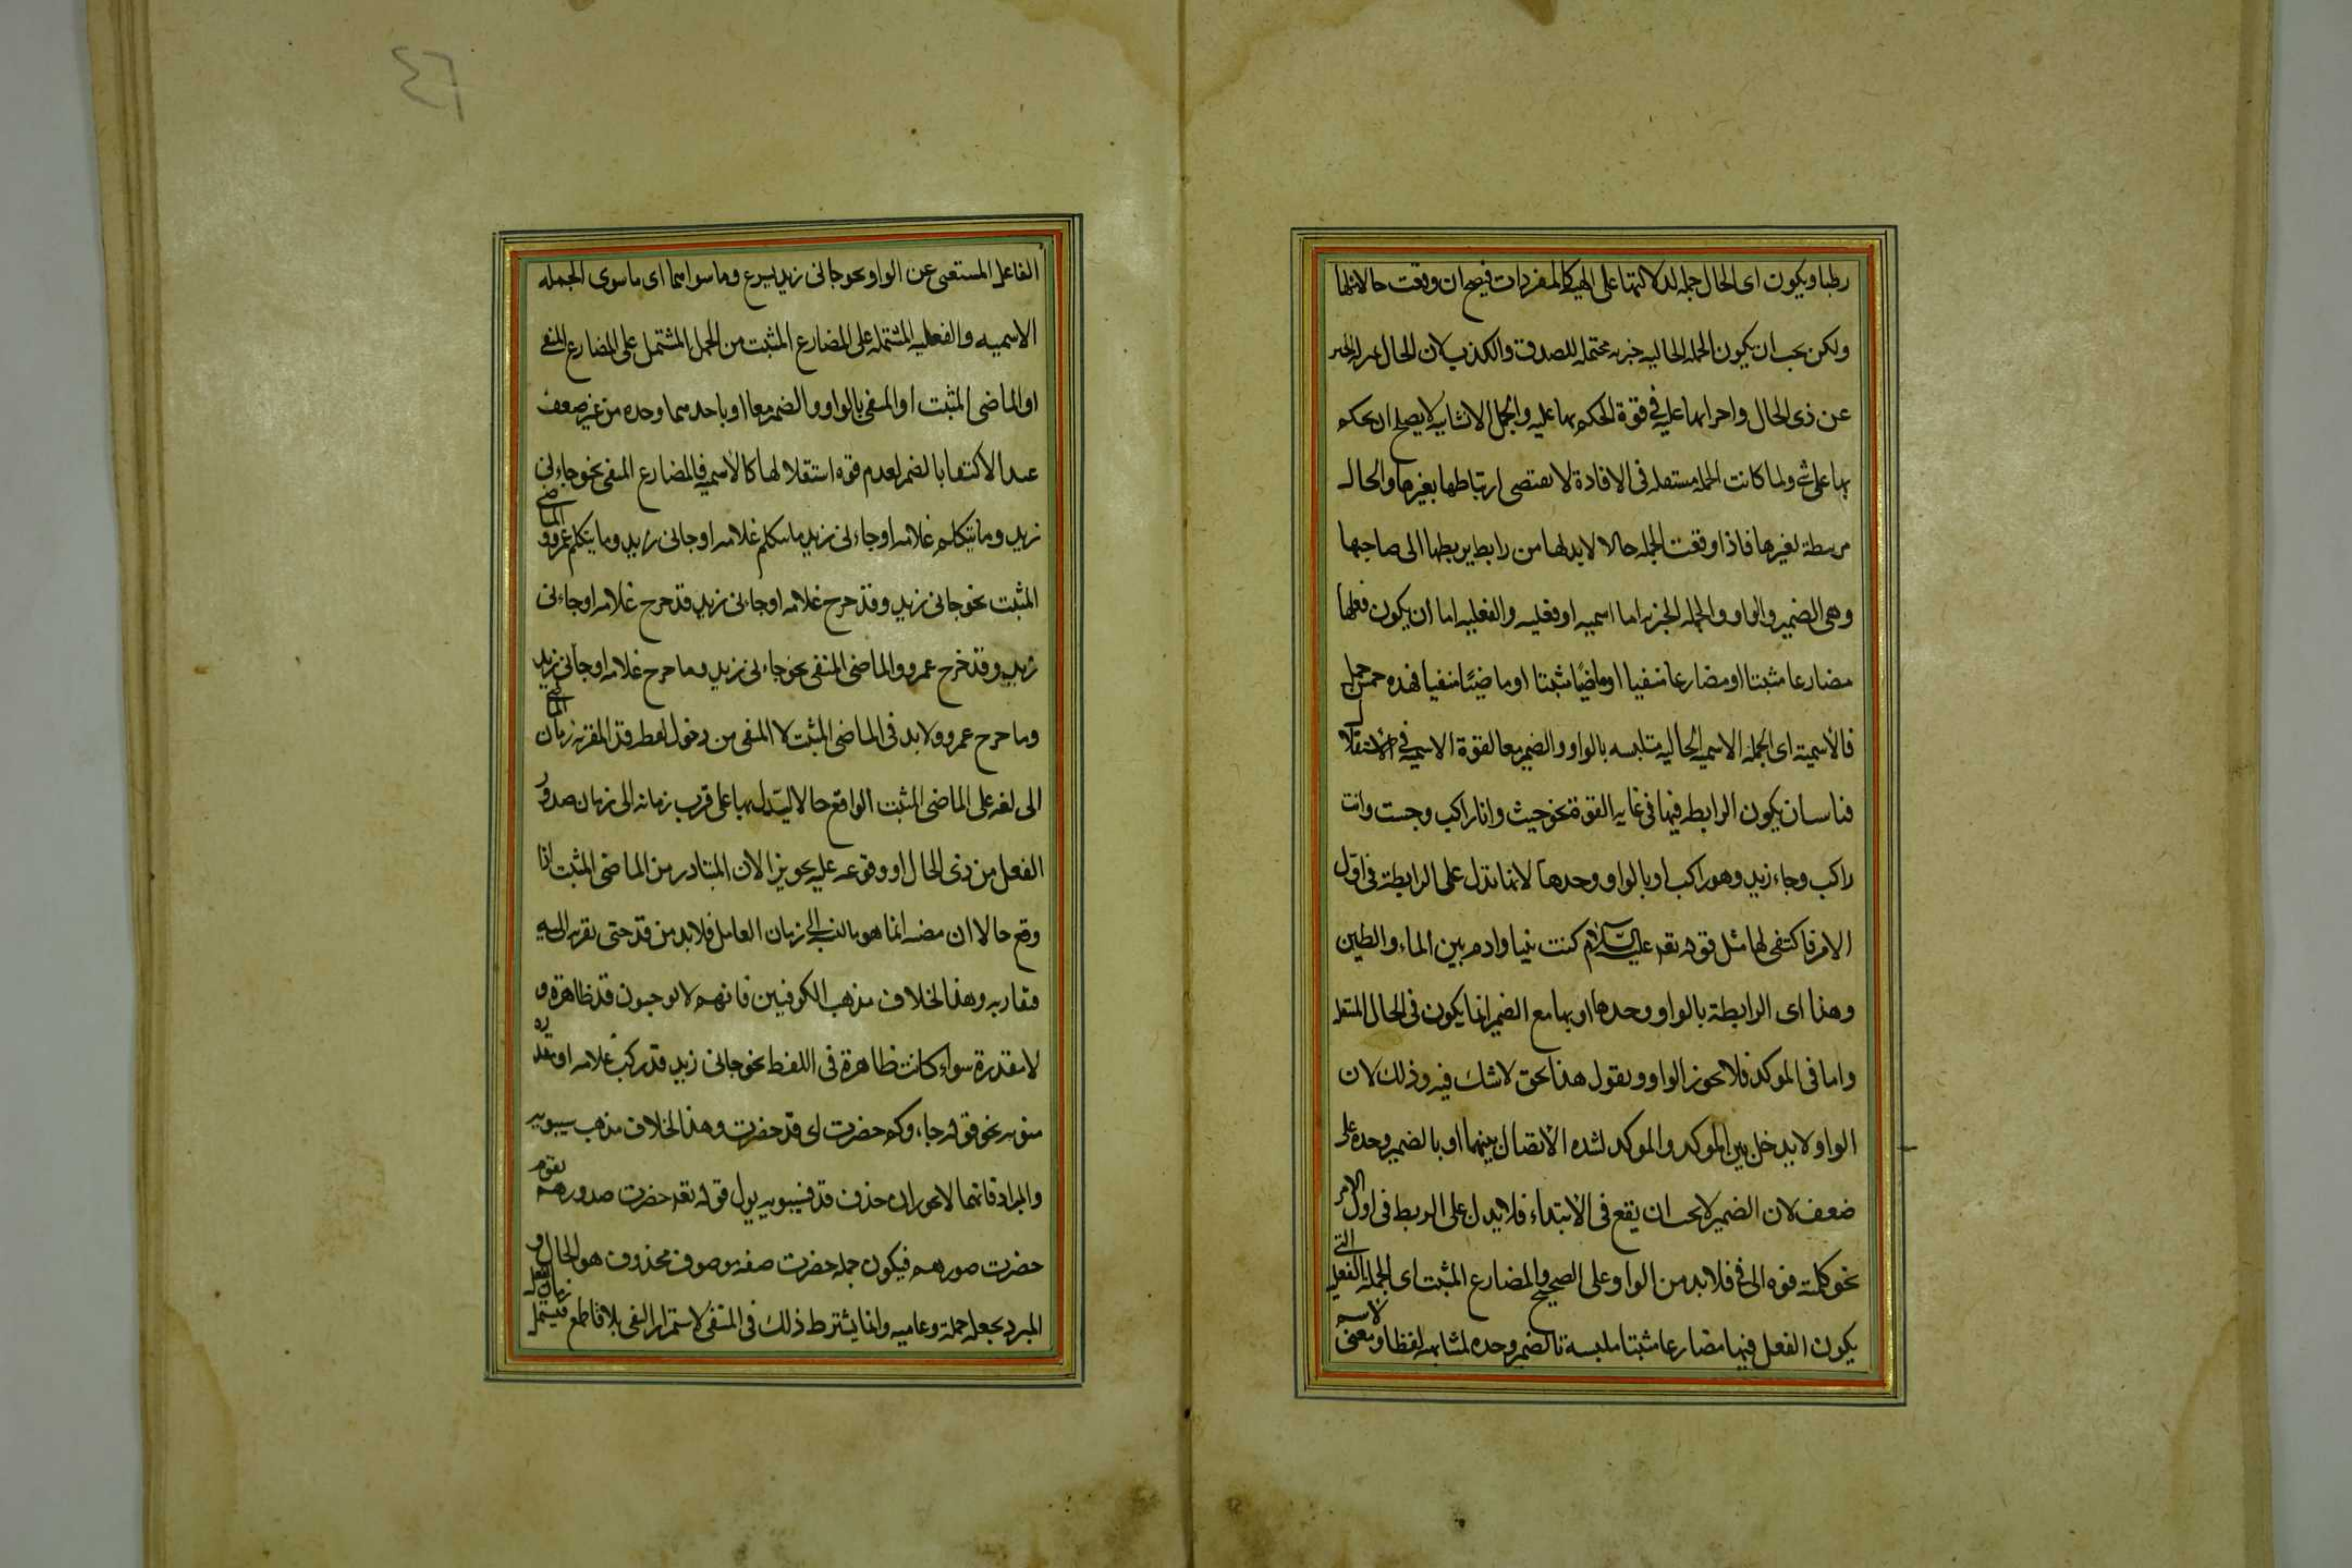 رطبا ويكون اى الحال جمله لدلالتها على الهيئة كالمفردات فيصح ان وقعت حالا مثلها
ولكن يجب ان يكون الجمله الحاليه خبريه محتمله للصدق والكذب لان الحال بمنزلة الخبر
عن ذى الحال واجراىها عليه فى قوة الحكم بها عليه والجمل الانشاييه لا يصلح ان يحكم
بها على شى ولما كانت الجمله مستقله فى الافادة لا يقتضى ارتباطها بغيرها والحال
مرتبطة بغيرها فاذا وقعت الجمله حالا لابد لها من رابط يربطها الى صاحبها
وهى الضمير والواو والجمله الخبريه اما اسميه او فعليه والفعليه اما ان يكون فعلها
مضارعا مثبتا او مضارعا منفيا او ماضيًا مثبتا او ماضيًا منفيا فهذه خمس جمل
فالاسمية اى الجمله الاسميه الحاليه متلبسه بالواو والضمير معا لقوة الاسميه فى الاستقلال
فناسب ان يكون الرابطه فيها فى غايه القوة نحو جيت وانا راكب وجيت وانت
راكب وجاء زيد وهو راكب او بالواو وحدها لانها تدل على الرابطة فى اول
الامر فاكتفى لها مثل قوله عليه السلام كنت نبيا وادم بين الماء والطين
وهذا اى الرابطة بالواو وحدها او بها مع الضمير انما يكون فى الحال المنتقله
واما فى الموكد فلا يجوز الواو ويقول هذا الحق لا شك فيه وذلك لان
الواو لا يدخل بين الموكد والموكد لشده الاتصال بينهما او بالضمير وحده على
ضعف لان الضمير لا يجب ان يقع فى الابتداء فلا يدل على الربط فى اول الامر
نحو كلمته فوه الى فى فلابد من الواو على الصحيح والمضارع المثبت اى الجمله الفعليه التى
يكون الفعل فيها مضارعا مثبتا ملبسة بالضمير وحده لمشابهته لفظا ومعنى لاسم
الفاعل المستغنى عن الواو نحو جانى زيد يسرع وما سواهما اى ما سوى الجمله
الاسميه والفعليه المشتمله على المضارع المثبت من الجمل المشتمل على المضارع المنفى
او الماضى المثبت او المنفى بالواو والضمير معا او باحدهما وحده من غير ضعف
عند الاكتفا بالضمير لعدم قوه استقلالها كالاسميه فالمضارع المنفى نحو جاءنى
زيد وما يتكلم غلامه او جاءنى زيد ما يتكلم غلامه او جانى زيد وما يتكلم عمرو والماضى
المثبت نحو جانى زيد وقد خرج غلامه او جاءنى زيد قد خرج غلامه او جاءنى
زيد وقد خرج عمرو والماضى المنفى نحو جاءنى زيد وما خرج غلامه او جانى زيد
وما خرج عمرو ولابد فى الماضى المثبت لا المنفى من دخول لفظ قد المقربه زمان الماضى
الى لغه على الماضى المثبت الواقع حالا ليدل بها على قرب زمانه الى زمان صدور
الفعل من ذى الحال او وقوعه عليه تجويزا لان المتبادر من الماضى المثبت اذا
وقع حالا ان مضيه انما هو بالنسبة الى زمان العامل فلابد من قد حتى يقربه اليه
فقاربه وهذا لخلاف مذهب الكوفيين فانهم لا يوجبون قد ظاهرة و
لا مقدرة سواء كانت ظاهرة فى اللفظ نحو جانى زيد قد ركب غلامه او مقدره
منويه نحو قوله جاءوكم حضرت اى قد حضرت وهذا لخلاف مذهب سيبويه
والمبرد فانهما لا يجوزان حذف قد فسيبويه يول قوله حضرت صدورهم بقوم
حضرت صدورهم فيكون جمله حضرت صفه موصوف محذوف هو الحال و
المبرد يجعله جملة دعاييه وانما يشترط ذلك فى المنفى لاستمرار النفى بلا قاطع فيشمل زمان الفعل